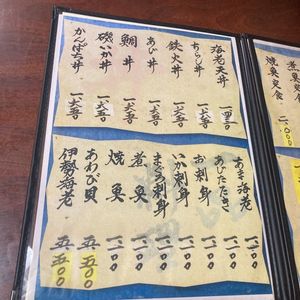 海老天丼 一、四五〇
ちらし丼 一、六五〇
鉄火丼 一、六五〇
あじ丼 一、六五〇
鯛丼 一、六五〇
磯いか丼 一、六五〇
かんぱち丼 一、六五〇
あま海老 一、一〇〇
あじたたき 一、一〇〇
お刺身 一、一〇〇
いか刺身 一、一〇〇
まぐろ刺身 一、一〇〇
煮魚 一、一〇〇
焼魚 一、一〇〇
あわび貝 五、五〇〇
伊勢海老 五、五〇〇
煮魚定食
焼魚定食